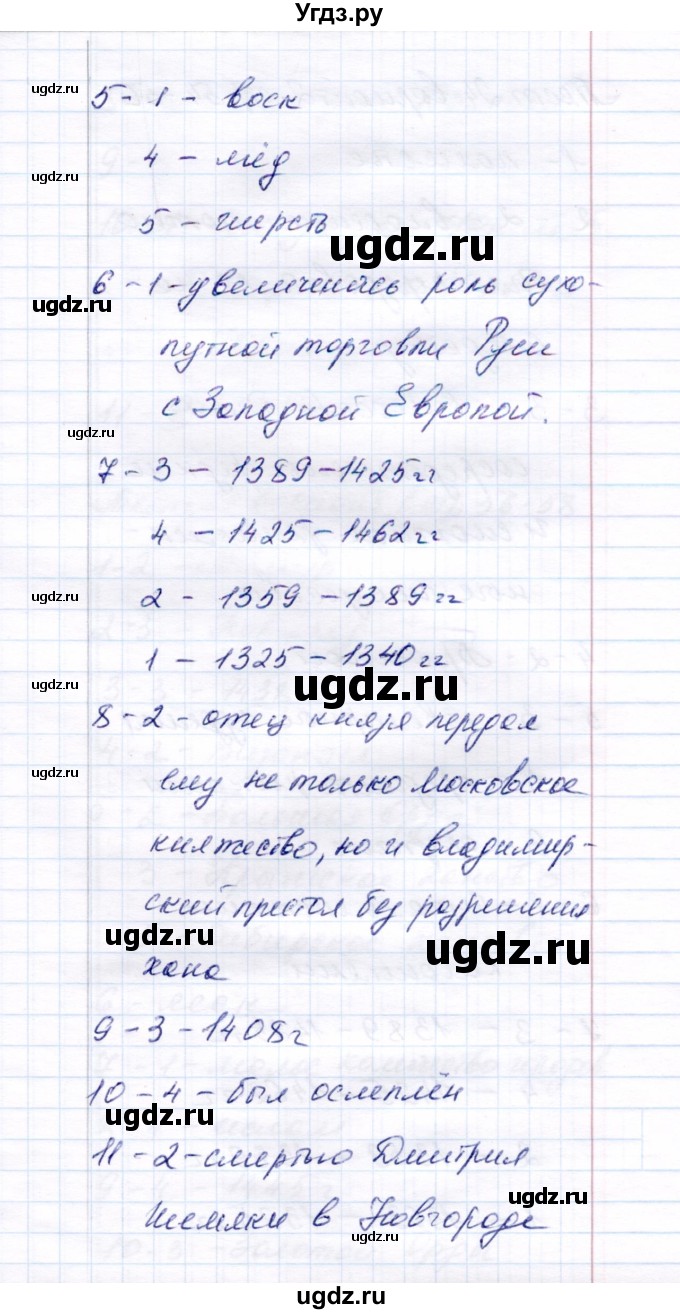 Угдз.ру
ugdz.ru
5-1- воск
4 - мёд
ugdz.ru
5 - шерсть
ugdz.ru
6-1-увеличилась роль сухо-
ugdz.ru
путной торговли Руси
с Западной Европой.
ugdz.ru
7-3 - 1389-1425гг
4 - 1425-1462гг
ugdz.ru
2 - 1359-1389гг
1 - 1325-1340гг
ugdz.ru
ugdz.ru
8-2-отец князя передал
ugdz.ru
ему не только Московское
княжество, но и владимир-
ский престол без разрешения
ugdz.ru
ugdz.ru
хана
9-3-1408г
10-4-был ослеплён
ugdz.ru
11-2-смертью Дмитрия
ugdz.ru
Шемяки в Новгороде
ugdz.ru
ugdz.ru